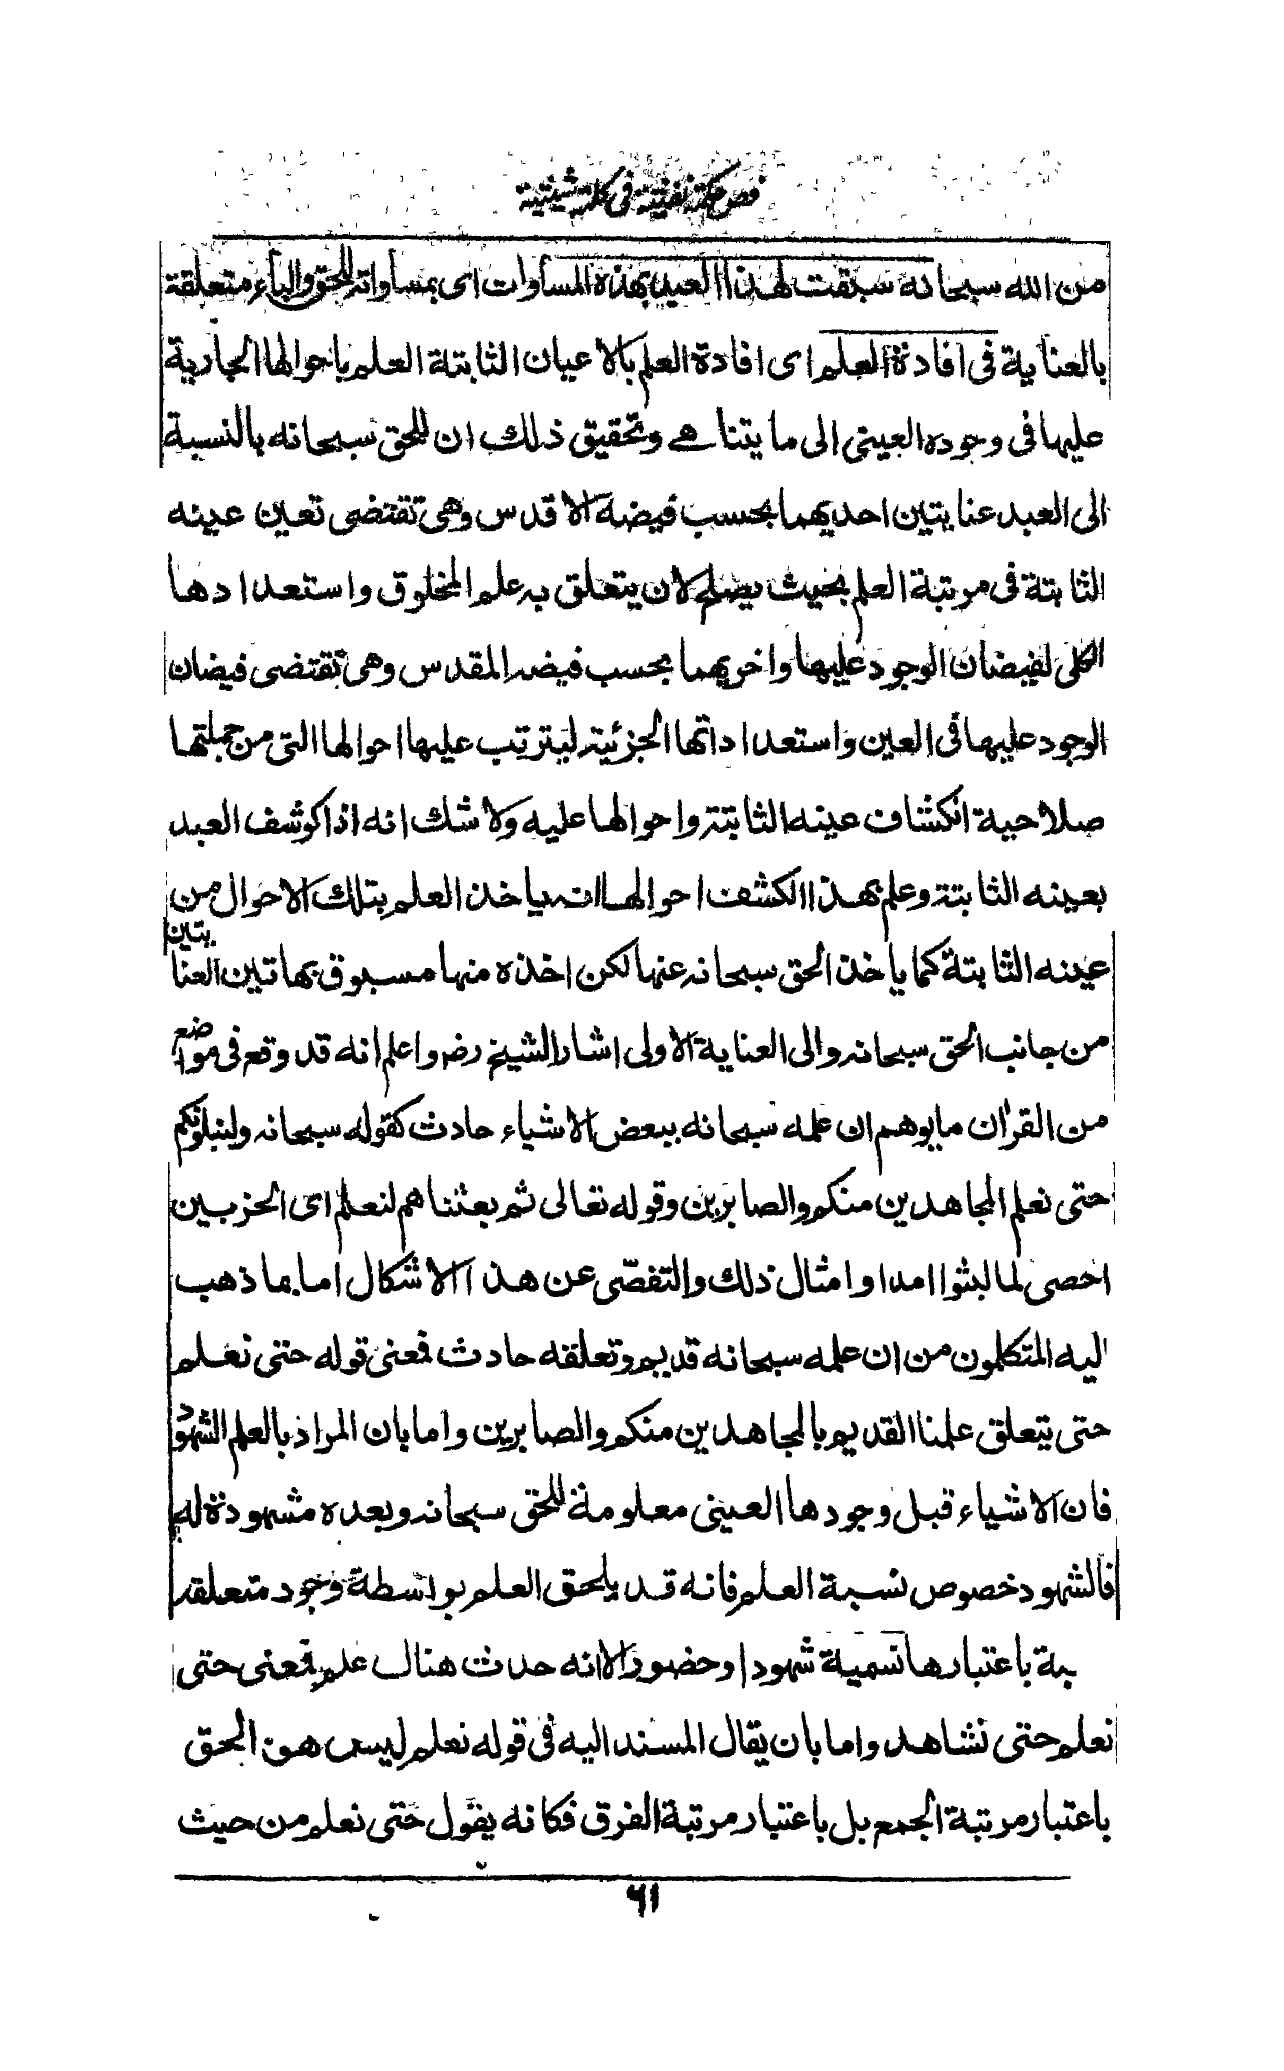 فص حكمة نفثية في كلمة شيثية
من الله سبحانه سبقت لهذا العبد بهذه المسأوات اى بمسأواته للحق والباء متعلقة
بالعناية فى افادة العلم اى افادة العلم بالاعيان الثابتة العلم باحوالها الجارية
عليها فى وجوده العينى الى ما يتناهے وتحقيق ذلك ان للحق سبحانه بالنسبة
الى العبد عنايتين احديهما بحسب فيضه الاقدس وهى تقتضى تعين عينه
الثابتة فى مرتبة العلم بحيث يصلح لان يتعلق به علم المخلوق واستعدادها
الكلى لفيضان الوجود عليها واخريهما بحسب فيضه المقدس وهى تقتضى فيضان
الوجود عليها فى العين واستعداداتها الجزئية ليترتب عليها احوالها التى من جملتها
صلاحية انكشاف عينه الثابتة واحوالها عليه ولا شك انه اذا كوشف العبد
بعينه الثابتة وعلم بهذا الكشف احوالها انه ياخذ العلم بتلك الاحوال من
عينه الثابتة كما ياخذ الحق سبحانه عنها لكن اخذه منها مسبوق بهاتين العنايتين
من جانب الحق سبحانه والى العناية الاولى اشار الشيخ رضه واعلم انه قد وقع فى مواضع
من القرآن ما يوهم ان علمه سبحانه ببعض الاشياء حادث كقوله سبحانه ولنبلونكم
حتى نعلم المجاهدين منكم والصابرين وقوله تعالى ثم بعثناهم لنعلم اى الحزبين
احصى لما لبثوا امدا وامثال ذلك والتفصّى عن هذا الاشكال اما بما ذهب
اليه المتكلمون من ان علمه سبحانه قديم وتعلقه حادث فمعنى قوله حتى نعلم
حتى يتعلق علمنا القديم بالمجاهدين منكم والصابرين واما بان المراد بالعلم الشهود
فان الاشياء قبل وجودها العينى معلومة للحق سبحانه وبعده مشهودة له
فالشهود خصوص نسبة العلم فانه قد يلحق العلم بواسطة وجود متعلقه
بة باعتبارها تسمية شهودا وحضورا لا انه حدث هناك علم فمعنى حتى
نعلم حتى نشاهد واما بان يقال المسند اليه فى قوله نعلم ليس هو الحق
باعتبار مرتبة الجمع بل باعتبار مرتبة الفرق فكانه يقول حتى نعلم من حيث
٦١